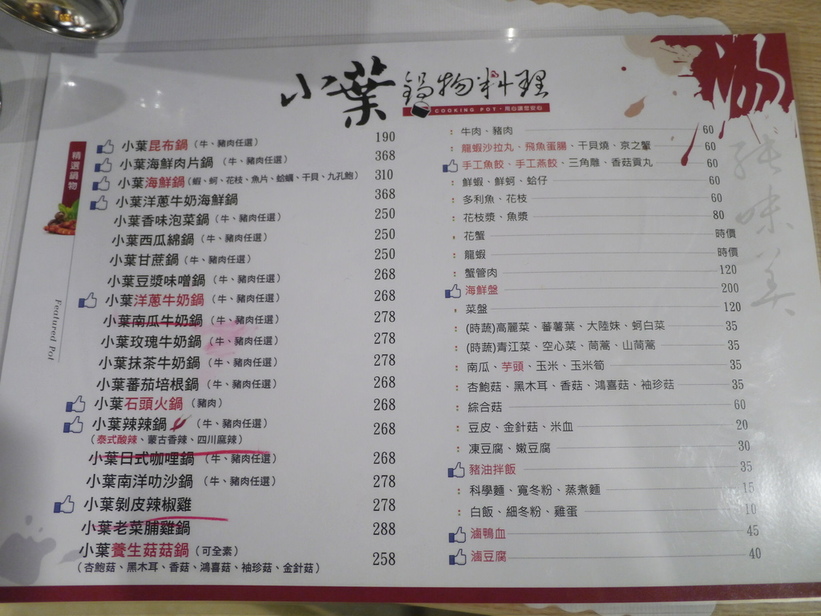 小葉 鍋物料理
COOKING POT
湯
精選鍋物
Featured Pot
小葉昆布鍋（牛、豬肉任選） 190
小葉海鮮肉片鍋（牛、豬肉任選） 368
小葉海鮮鍋（蝦、蚵、花枝、魚片、蛤蠣、干貝、九孔鮑） 310
小葉洋蔥牛奶海鮮鍋 368
小葉香味泡菜鍋（牛、豬肉任選） 250
小葉西瓜綿鍋（牛、豬肉任選） 250
小葉甘蔗鍋（牛、豬肉任選） 250
小葉豆漿味噌鍋（牛、豬肉任選） 268
小葉洋蔥牛奶鍋（牛、豬肉任選） 268
小葉南瓜牛奶鍋（牛、豬肉任選） 278
小葉玫瑰牛奶鍋（牛、豬肉任選） 278
小葉抹茶牛奶鍋（牛、豬肉任選） 278
小葉蕃茄培根鍋（牛、豬肉任選） 268
小葉石頭火鍋（豬肉） 268
小葉辣辣鍋（牛、豬肉任選） 268
（泰式酸辣、蒙古香辣、四川麻辣）
小葉日式咖哩鍋（牛、豬肉任選） 268
小葉南洋叻沙鍋（牛、豬肉任選） 278
小葉剝皮辣椒雞 278
小葉老菜脯雞鍋 288
小葉養生菇菇鍋（可全素） 258
（杏鮑菇、黑木耳、香菇、鴻喜菇、袖珍菇、金針菇）
牛肉、豬肉 60
龍蝦沙拉丸、飛魚蛋腸、干貝燒、京之蟹 60
手工魚餃、手工燕餃、三角雕、香菇貢丸 60
鮮蝦、鮮蚵、蛤仔 60
多利魚、花枝 60
花枝漿、魚漿 80
花蟹 時價
龍蝦 時價
蟹管肉 120
海鮮盤 200
菜盤 120
(時蔬)高麗菜、蕃薯葉、大陸妹、蚵白菜 35
(時蔬)青江菜、空心菜、茼蒿、山茼蒿 35
南瓜、芋頭、玉米、玉米筍 35
杏鮑菇、黑木耳、香菇、鴻喜菇、袖珍菇 35
綜合菇 60
豆皮、金針菇、米血 20
凍豆腐、嫩豆腐 30
豬油拌飯 35
科學麵、寬冬粉、蒸煮麵 15
白飯、細冬粉、雞蛋 10
滷鴨血 45
滷豆腐 40